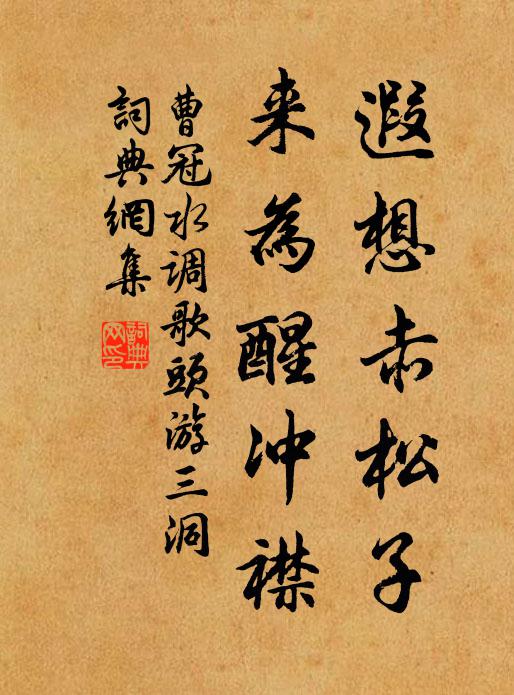 遐想赤松子
来為醒冲襟
曹冠水调歌頭游三洞
詞典網集
詞典
网印